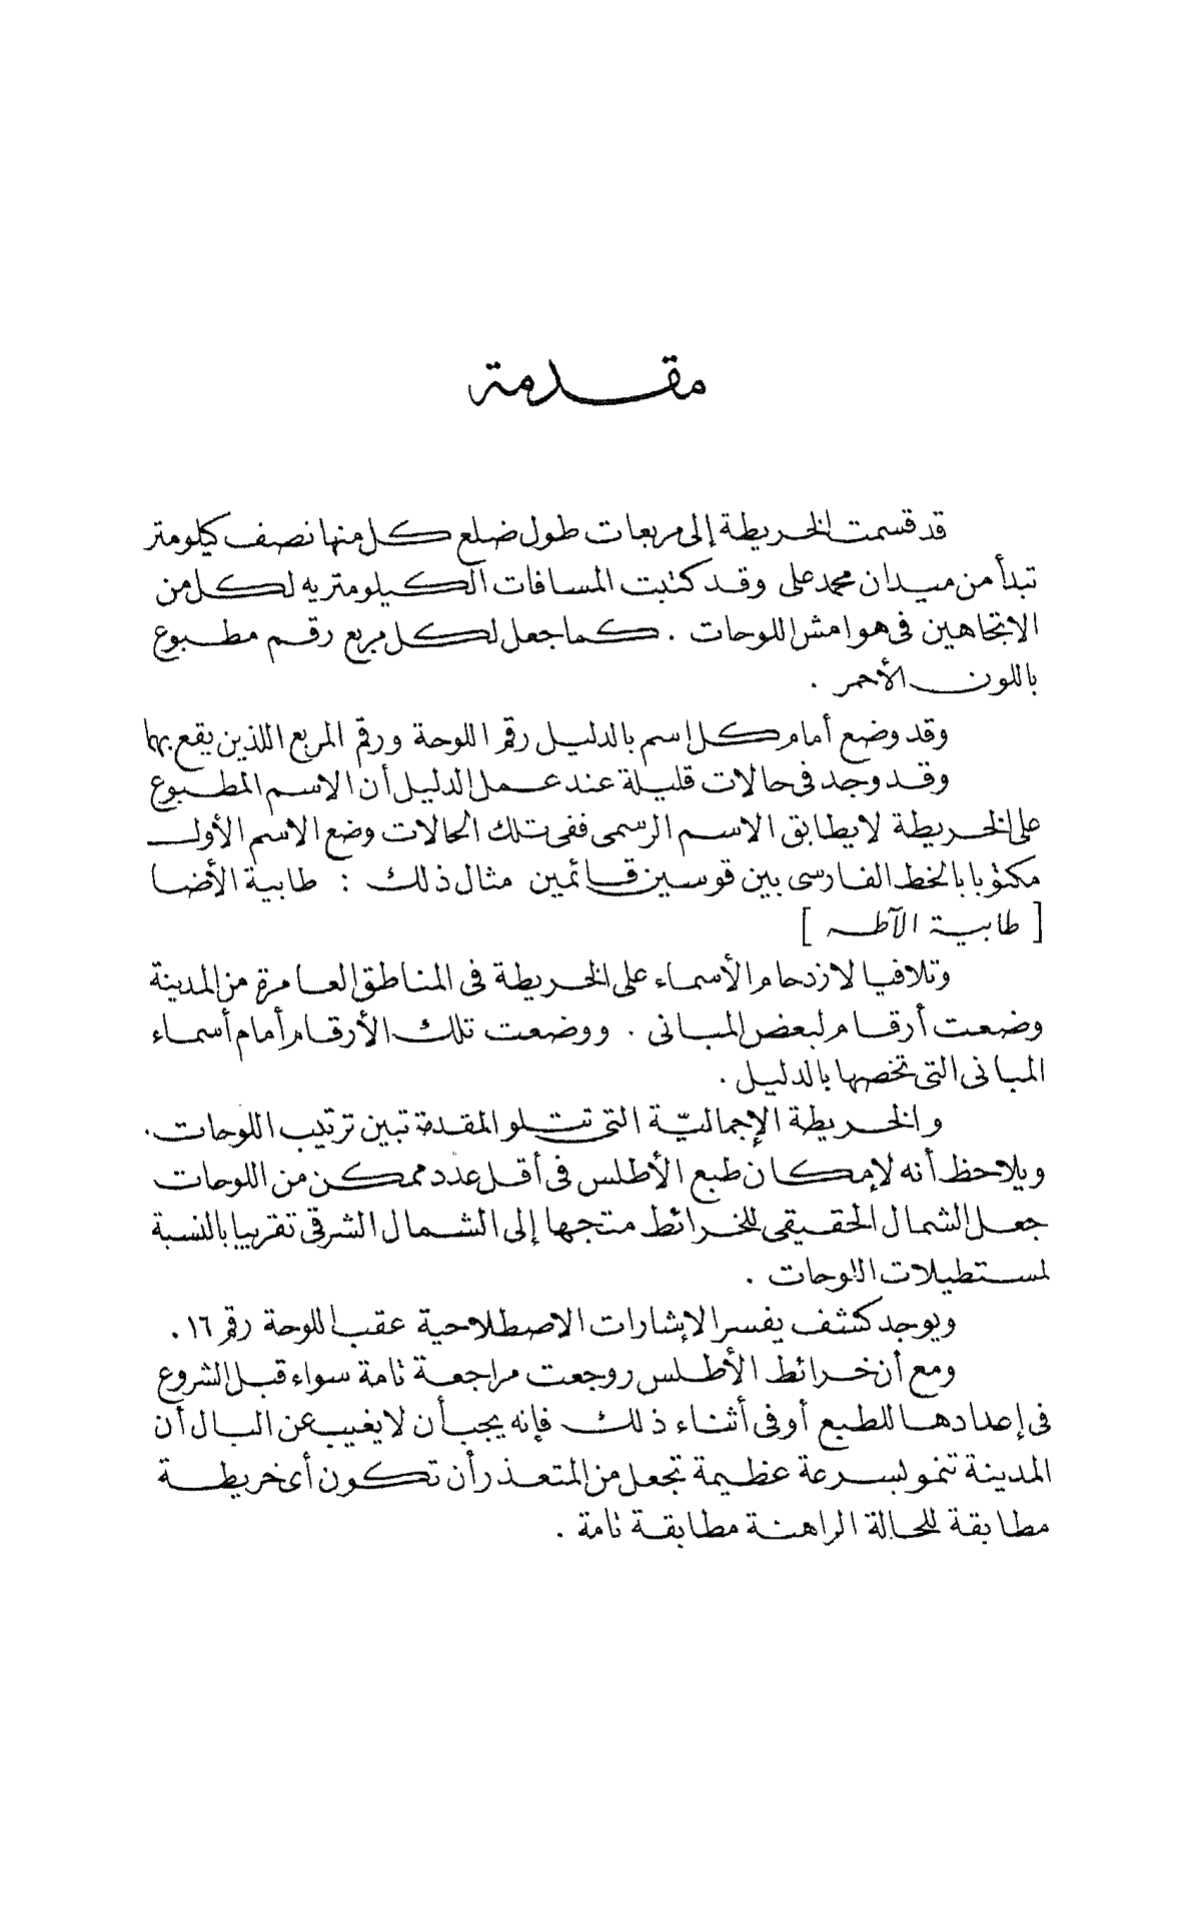 مقدمة
قد قسمت الخريطة إلى مربعات طول ضلع كل منها نصف كيلومتر
تبدأ من ميدان محمد على وقد كتبت المسافات الكيلومتريه لكل من
الاتجاهين فى هوامش اللوحات . كما جعل لكل مربع رقم مطبوع
باللون الأحمر .
وقد وضع أمام كل اسم بالدليل رقم اللوحة ورقم المربع اللذين يقع بهما
وقد وجد فى حالات قليلة عند عمل الدليل أن الاسم المطبوع
على الخريطة لا يطابق الاسم الرسمى ففى تلك الحالات وضع الاسم الأول
مكتوبا بالخط الفارسى بين قوسين قائمين مثال ذلك : طابية الأضا
[ طابية الآطه ]
وتلافيا لازدحام الأسماء على الخريطة فى المناطق العامرة من المدينة
وضعت أرقام لبعض المبانى . ووضعت تلك الأرقام أمام أسماء
المبانى التى تخصها بالدليل .
والخريطة الإجماليّة التى تتلو المقدمة تبين ترتيب اللوحات .
ويلاحظ أنه لإمكان طبع الأطلس فى أقل عدد ممكن من اللوحات
جعل الشمال الحقيقى للخرائط متجها إلى الشمال الشرقى تقريبا بالنسبة
لمستطيلات اللوحات .
ويوجد كشف يفسر الإشارات الاصطلاحية عقب اللوحة رقم ١٦ .
ومع أن خرائط الأطلس روجعت مراجعة تامة سواء قبل الشروع
فى إعدادها للطبع أو فى أثناء ذلك فإنه يجب أن لا يغيب عن البال أن
المدينة تنمو بسرعة عظيمة تجعل من المتعذر أن تكون أى خريطة
مطابقة للحالة الراهنة مطابقة تامة .